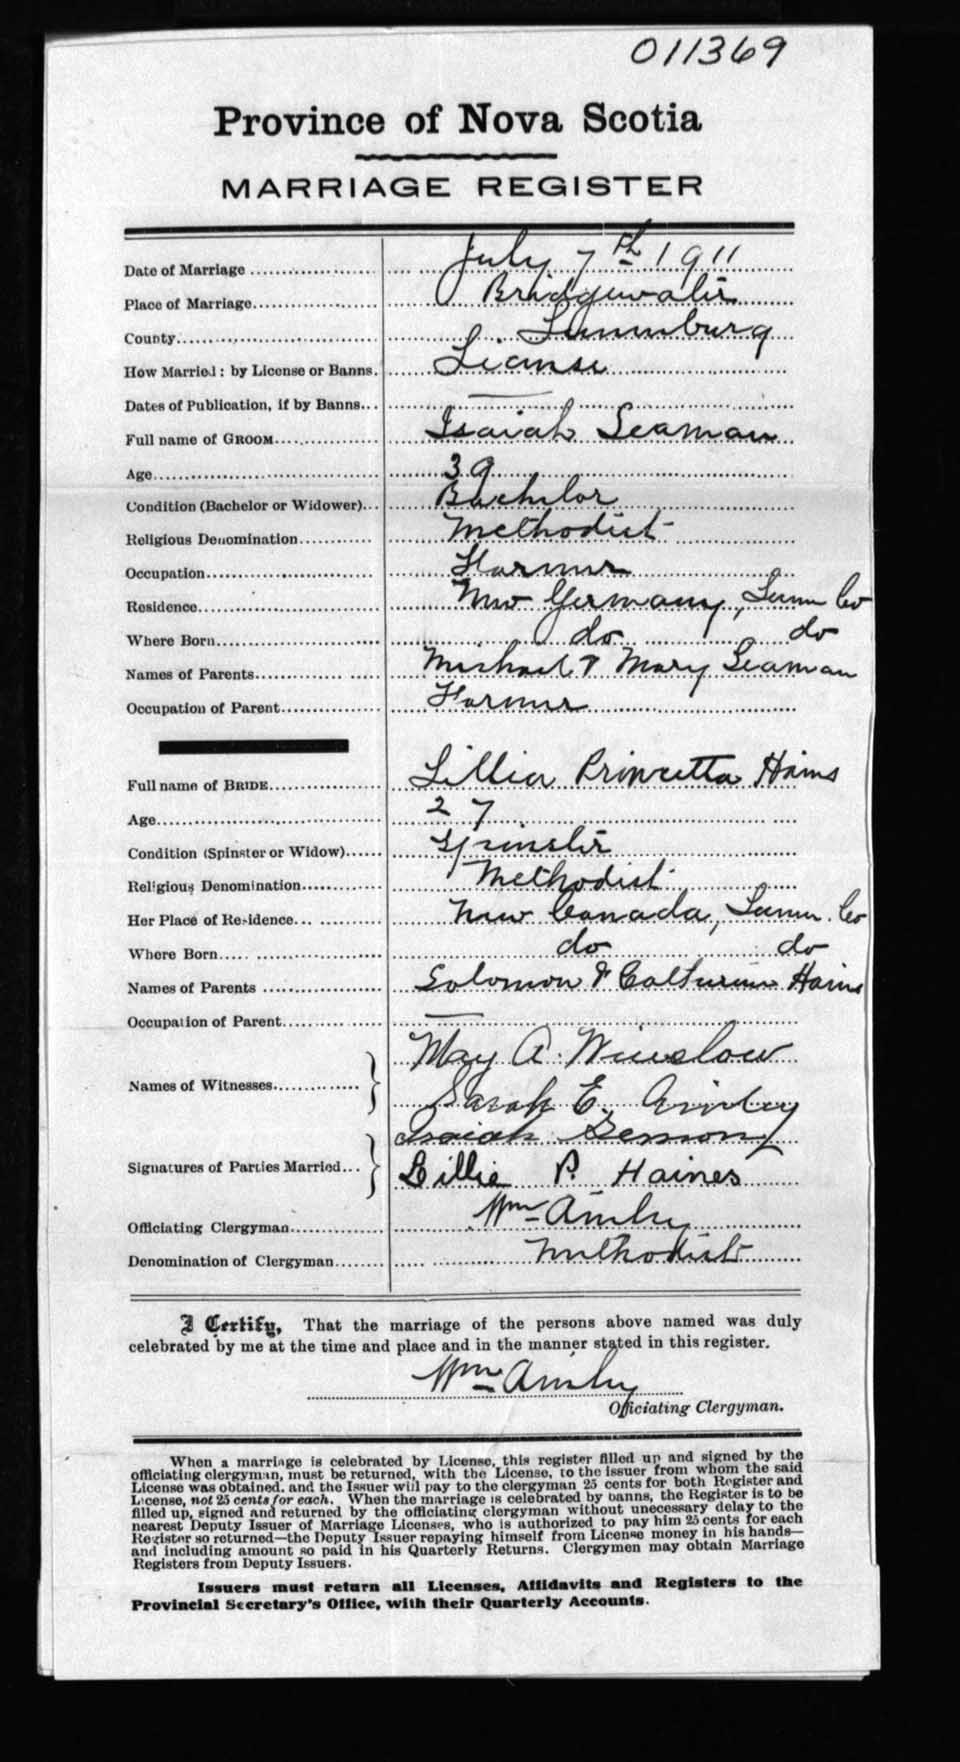 011369
Province of Nova Scotia
MARRIAGE REGISTER
Date of Marriage July 7th 1911
Place of Marriage Bridgewater
County Lunenburg
How Married: by License or Banns. License
Dates of Publication, if by Banns
Full name of GROOM Isaiah Seaman
Age 39
Condition (Bachelor or Widower) Bachelor
Religious Denomination Methodist
Occupation Farmer
Residence New Germany, Lunn Co
Where Born do do
Names of Parents Michael & Mary Seaman
Occupation of Parent Farmer
Full name of BRIDE Lillia Princetta Hains
Age 27
Condition (Spinster or Widow) Spinster
Religious Denomination Methodist
Her Place of Residence New Canada, Lunn. Co
Where Born do do
Names of Parents Solomon & Catherine Hains
Occupation of Parent —
Names of Witnesses May A. Winslow
Sarah E. Ainley
Signatures of Parties Married Isaiah Semon
Lillie P. Haines
Officiating Clergyman Wm Ainley
Denomination of Clergyman Methodist
I Certify, That the marriage of the persons above named was duly
celebrated by me at the time and place and in the manner stated in this register.
Wm Ainley
Officiating Clergyman.
When a marriage is celebrated by License, this register filled up and signed by the
officiating clergyman, must be returned, with the License, to the issuer from whom the said
License was obtained, and the Issuer will pay to the clergyman 25 cents for both Register and
License, not 25 cents for each. When the marriage is celebrated by banns, the Register is to be
filled up, signed and returned by the officiating clergyman without unnecessary delay to the
nearest Deputy Issuer of Marriage Licenses, who is authorized to pay him 25 cents for each
Register so returned—the Deputy Issuer repaying himself from License money in his hands—
and including amount so paid in his Quarterly Returns. Clergymen may obtain Marriage
Registers from Deputy Issuers.
Issuers must return all Licenses, Affidavits and Registers to the
Provincial Secretary's Office, with their Quarterly Accounts.